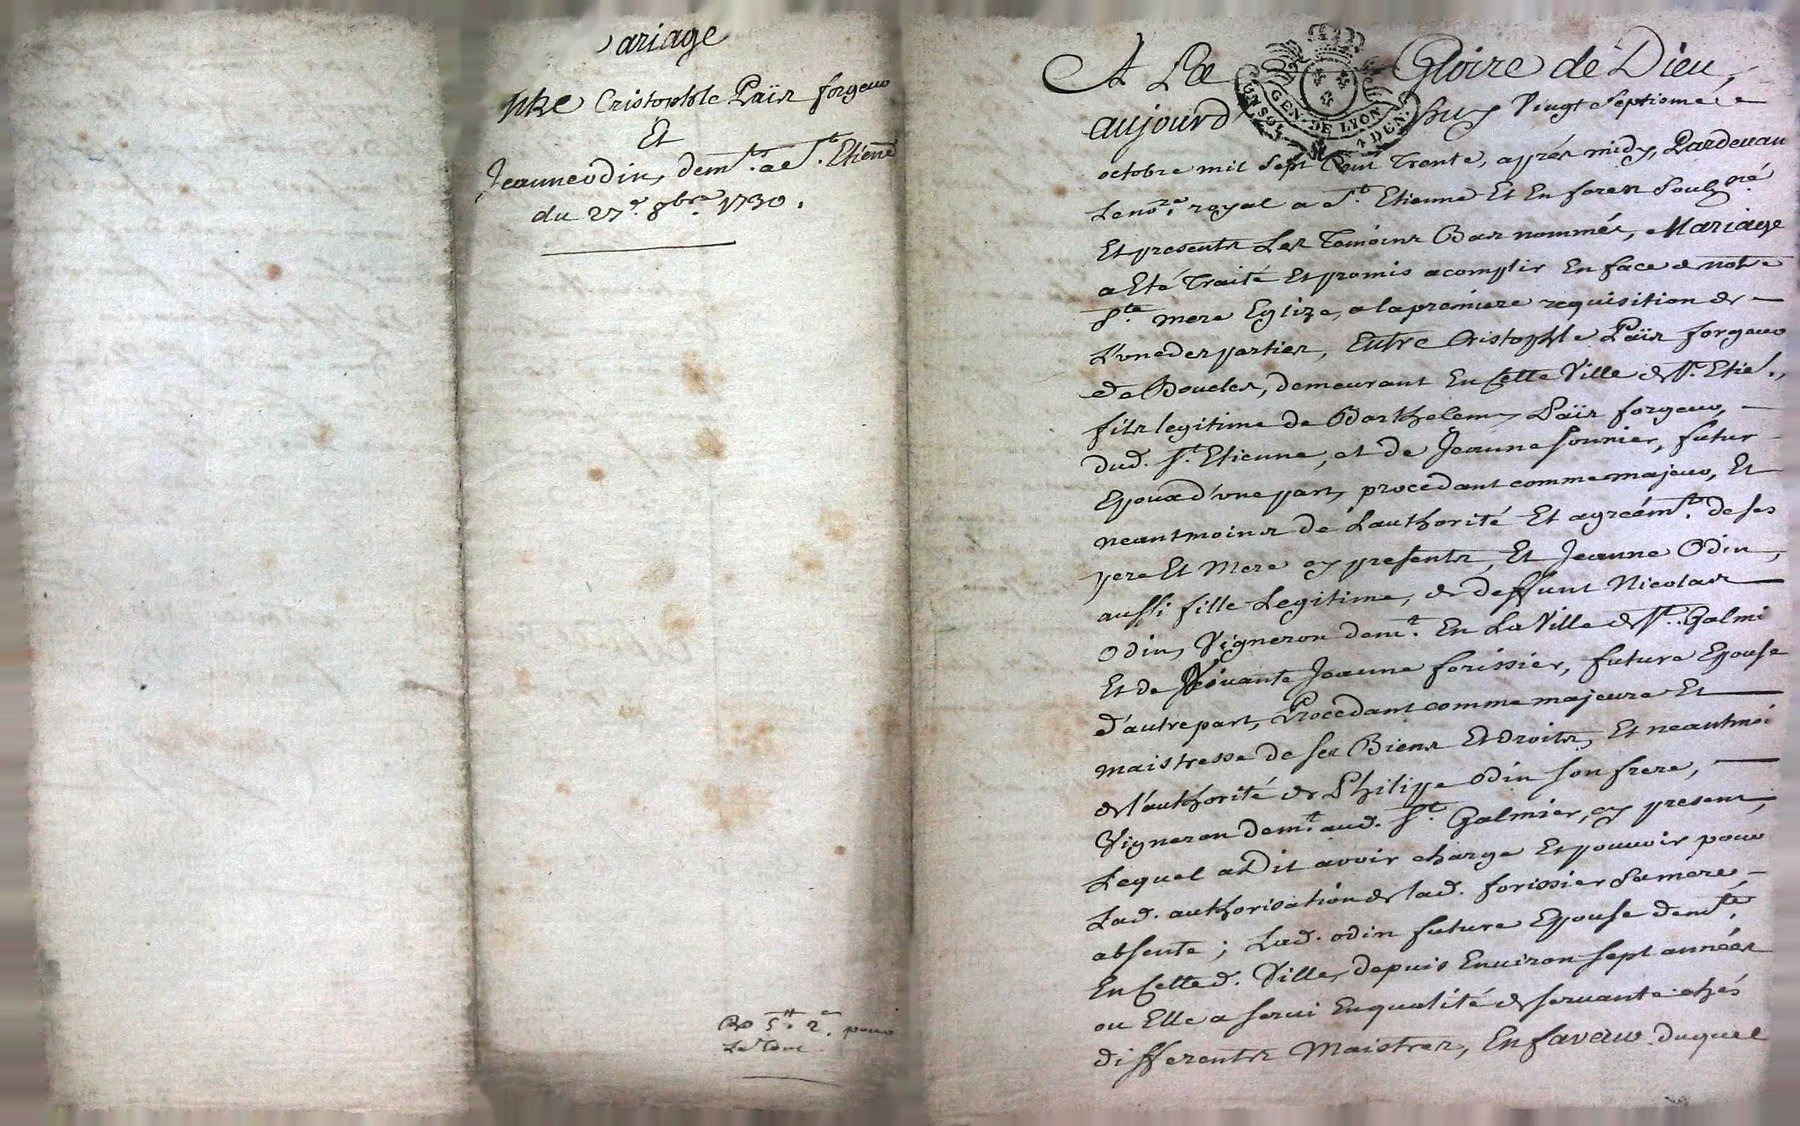 Mariage
Entre Cristophle Païs forgeur
Et
Jeanne odin, dem.ts a S.t Etienne
du 27.e 8bre. 1730.
R 5.tt 2.s pour
Le Tout
A La Gloire de Dieu,
aujourd huy Vingt Septiéme
octobre mil Sept Cent Trente, aprés midy, Pardevan
Le no.re royal a S.t Etienne Et En forez Soulz.né
Et presents Les Temoins Bas nommés, Mariage
a Eté Traité Et promis acomplir En face de notre
S.te mere Eglize, a la premiere requisition de
L'une des parties, Entre Cristophle Païs forgeur
de Boucles, demeurant En Cette Ville de S.t Etie.,
fils legitime de Barthelemy Païs forgeur,
dud. S.t Etienne, et de Jeanne Sonnier, futur
Epoux d'une part, procedant comme majeur, Et
neantmoins de L'authorité Et agréém.t de ses
pere Et Mere cy presents, Et Jeanne Odin,
aussi fille Legitime, de deffunt Nicolas
Odin, Vigneron dem.t En La Ville de S.t Galmi
Et de vivante Jeanne forissier, future Epouse
d'autre part, Procedant comme majeure Et
maistresse de ses Biens Et droits, Et neantmoi
de l'authorité de Philippe Odin son frere,
Vigneron dem.t aud. S.t Galmier, cy present,
Lequel a Dit avoir charge Et pouvoir pour
Lad. authorisation de lad. forissier Sa mere,
absente ; Lad. odin future Epouse dem.te,
En Cette d. Ville, depuis Environ sept années
ou Elle a servi En qualité de servante chés
differents Maistres, En faveur duquel
GEN. DE LYON